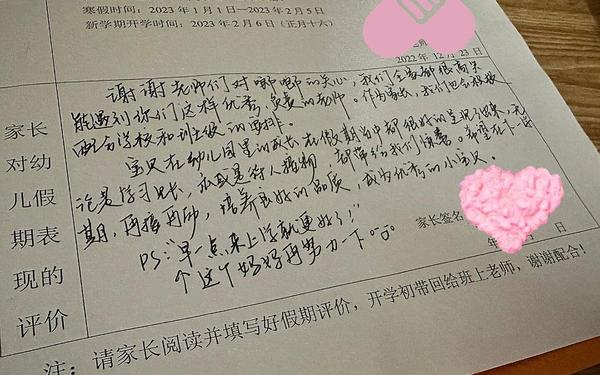 寒假时间：2023年1月1日—2023年2月5日
新学期开学时间：2023年2月6日（正月十六）
2022年12月23日
家长对幼儿假期表现的评价
谢谢老师们对嘟嘟的关心，我们全家都很高兴
能遇到你们这样优秀、负责的老师。作为家长，我们也会积极
配合学校和班级的安排。
宝贝在幼儿园里的成长在假期当中都很好的呈现出来，无
论是学习成长，亦或是待人接物，都带给我们惊喜。希望在下一学
期，再接再励，培养良好的品质，成为优秀的小宝贝。
PS:"早一点来上学就更好了！"
个这个妈妈再努力一下
家长签名
年 月 日
注：请家长阅读并填写好假期评价，开学初带回给班上老师，谢谢配合！